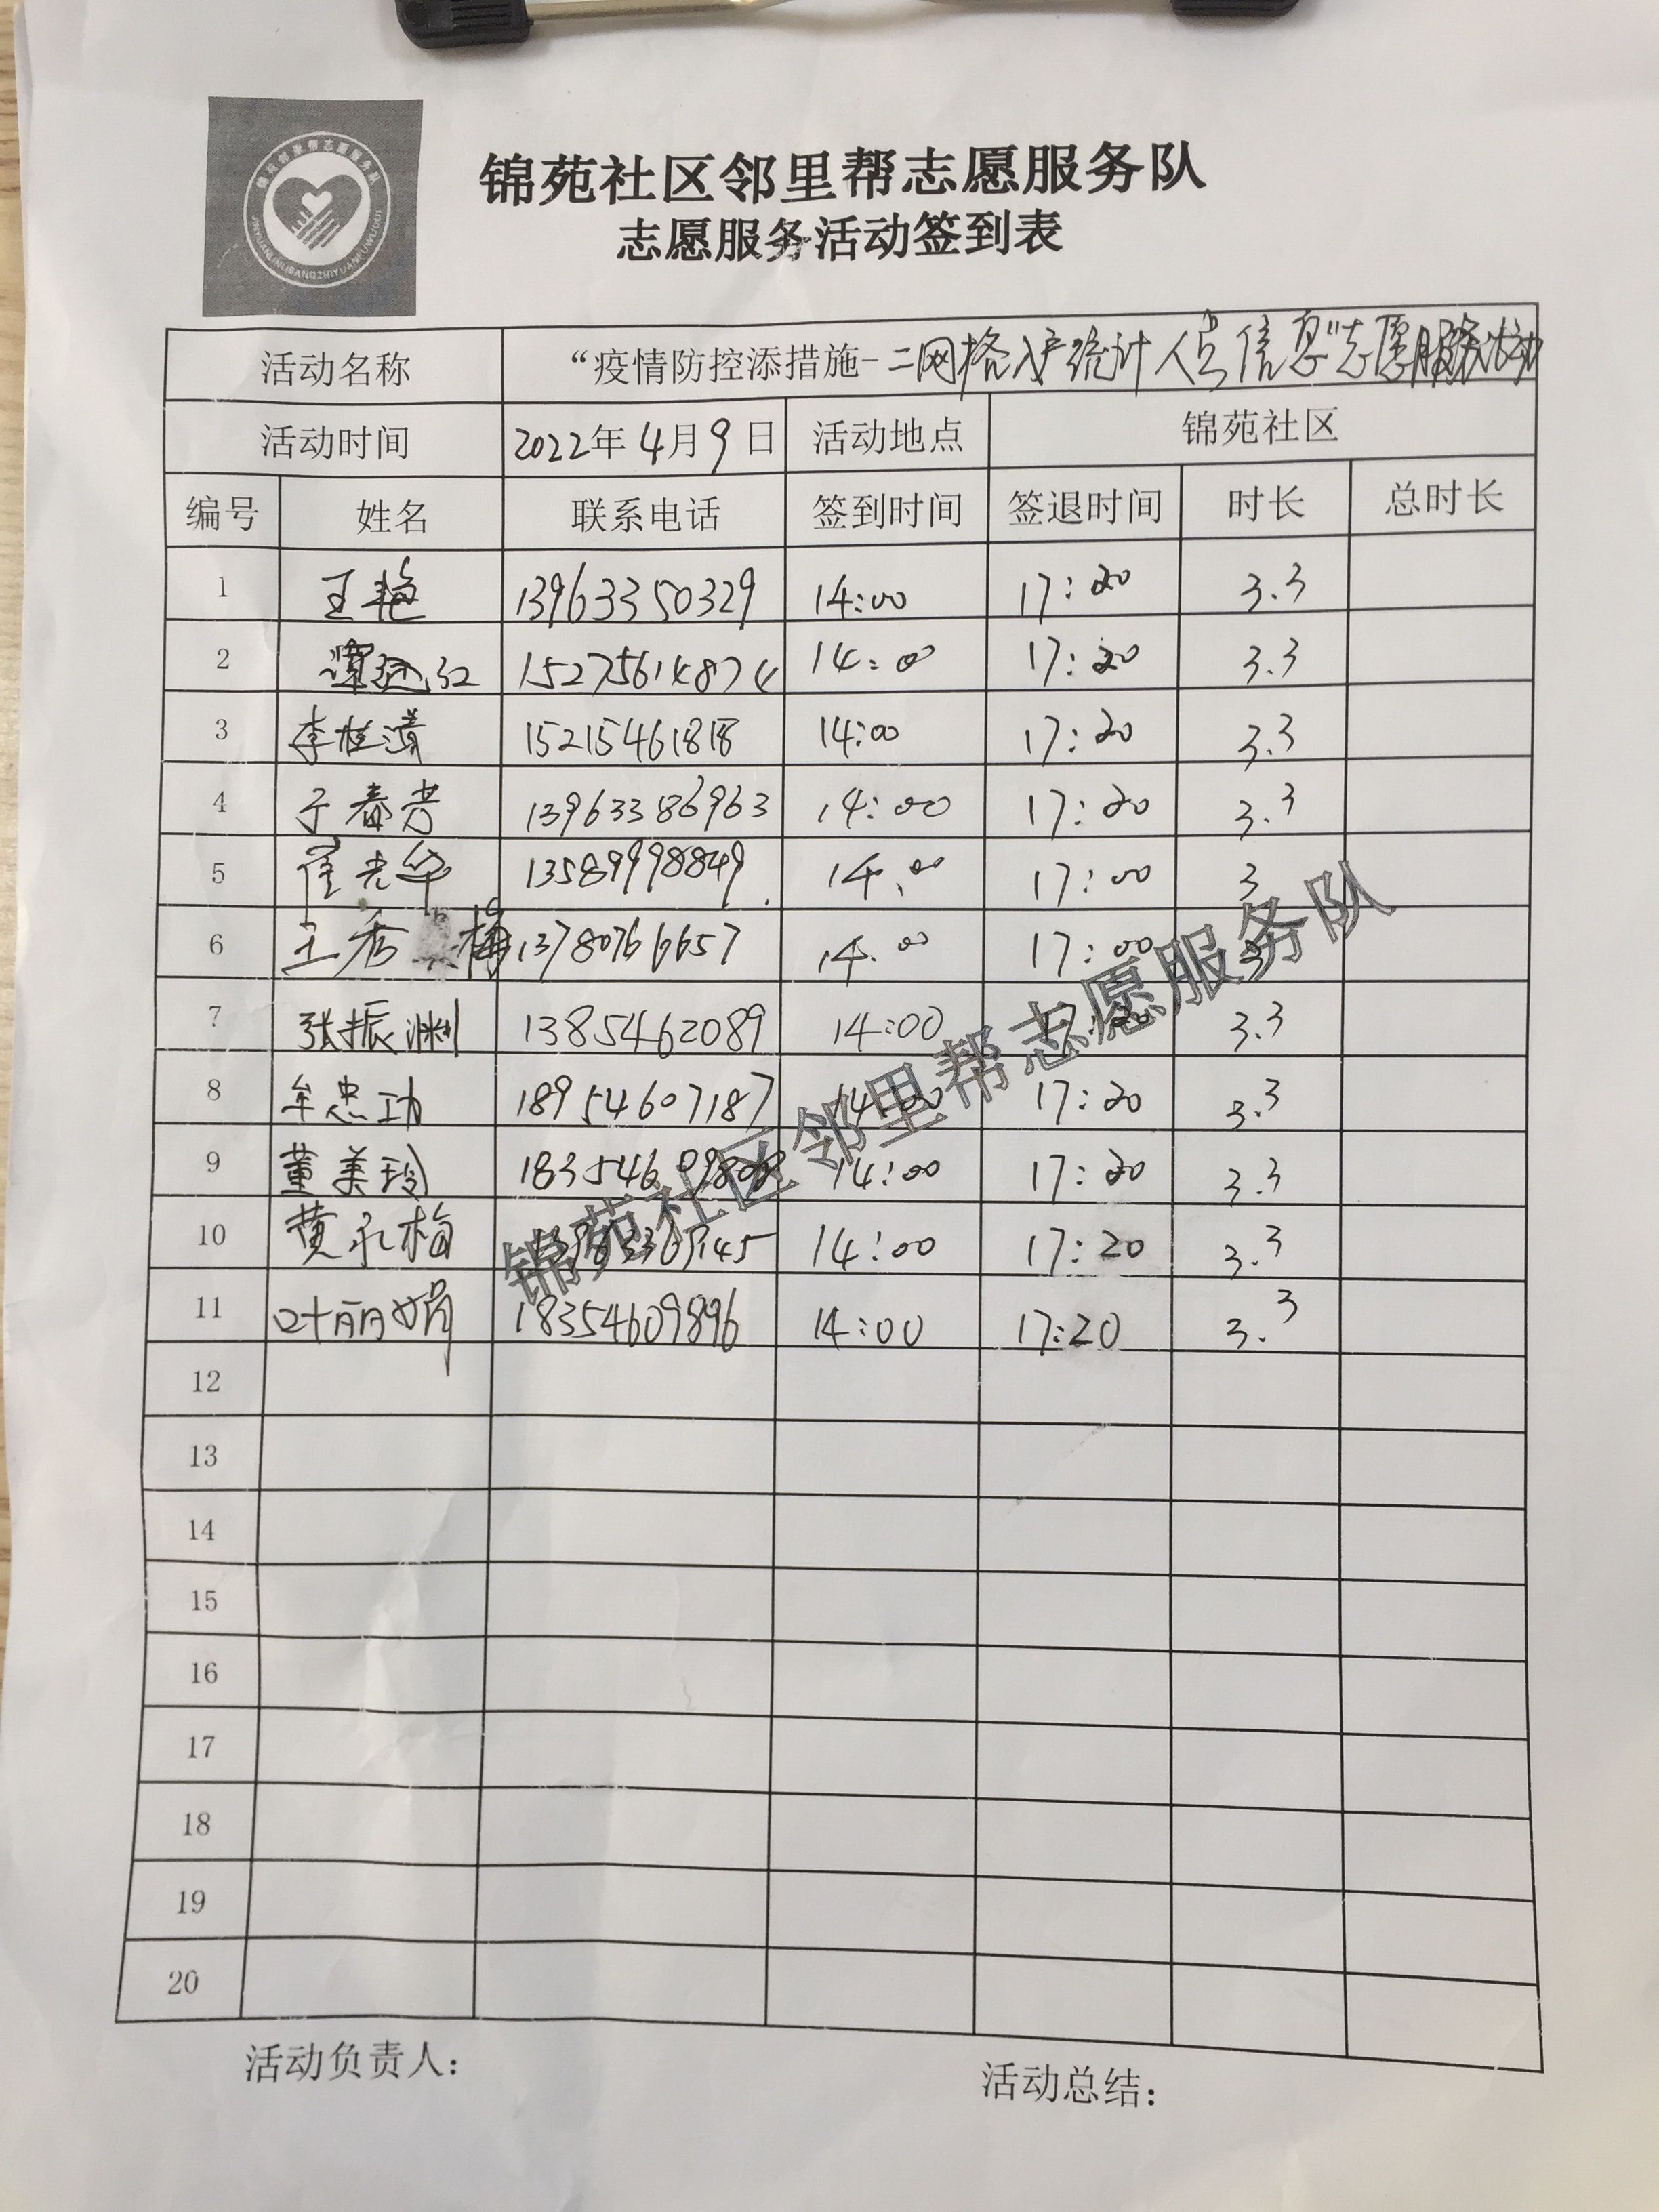 锦苑邻里帮志愿服务队
JINYUANLINLIBANGZHIYUANFUWUDUI
锦苑社区邻里帮志愿服务队
志愿服务活动签到表
活动名称 “疫情防控添措施-二网格入户统计人员信息”志愿服务活动
活动时间 2022年4月9日 活动地点 锦苑社区
编号 姓名 联系电话 签到时间 签退时间 时长 总时长
1 王艳 13963350329 14:00 17:20 3.3
2 15275614874 14:00 17:20 3.3
3 李桂清 15215461818 14:00 17:20 3.3
4 于春芳 13963386963 14:00 17:20 3.3
5 崔光华 13589998849 14:00 17:00 3
6 王秀梅 13780766657 14:00 17:00 3
7 张振渊 1385462089 14:00 17:20 3.3
8 牟忠功 18954607187 14:00 17:20 3.3
9 董美玲 14:00 17:20 3.3
10 黄永梅 14:00 17:20 3.3
11 叶丽娟 18354609896 14:00 17:20 3.3
12
13
14
15
16
17
18
19
20
锦苑社区邻里帮志愿服务队
活动负责人： 活动总结：